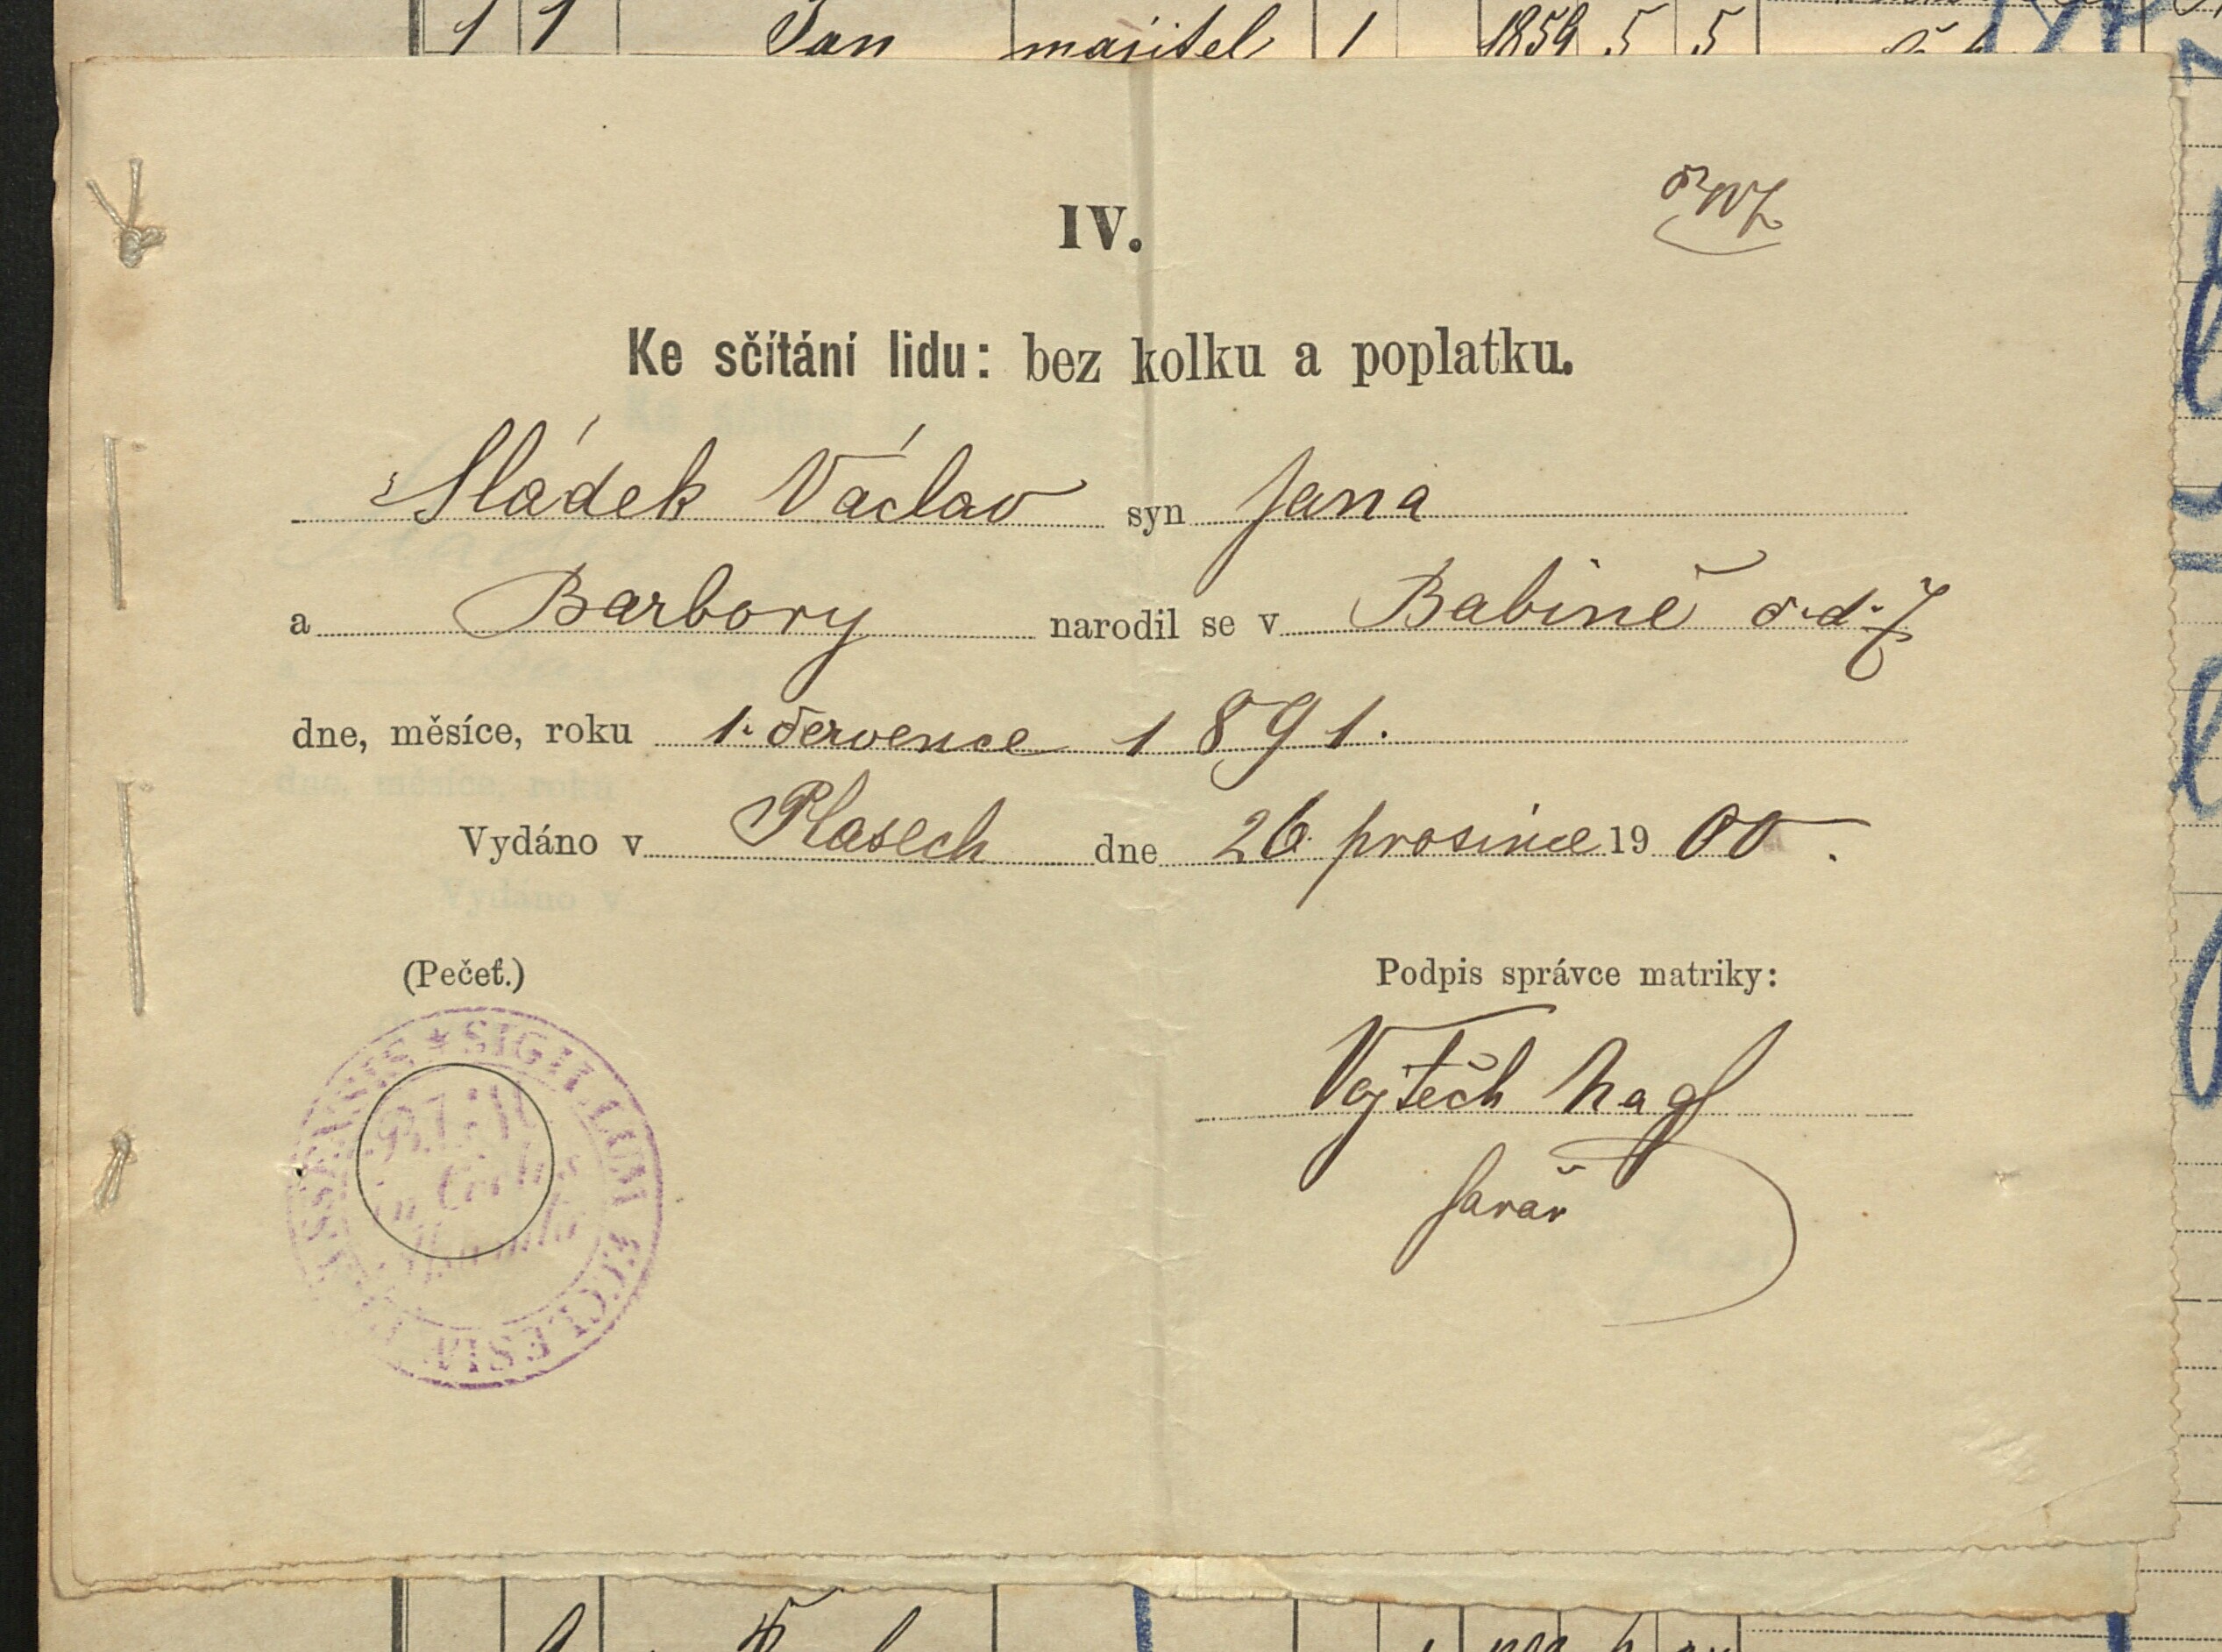 1 1 Jan majitel 1 1859 5 5
IV.
Ke sčítání lidu: bez kolku a poplatku.
Sládek Václav syn Jana
a Barbory narodil se v Babině č. d. 7
dne, měsíce, roku 1. července 1891.
Vydáno v Plasech dne 26. prosince 1900.
(Pečeť.)
Podpis správce matriky:
Vojtěch Nagl
farář
* SIGILLUM ECCLESIAE